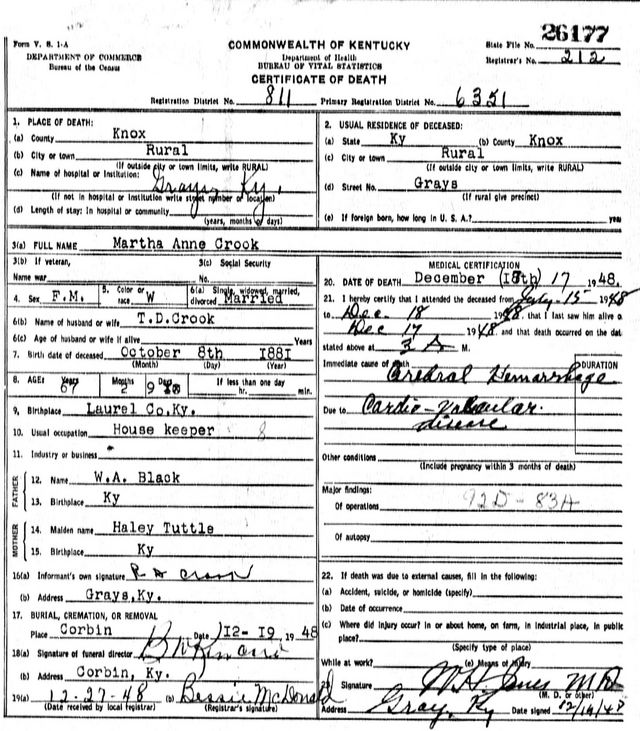 26177
Form V. S. 1-A
DEPARTMENT OF COMMERCE
Bureau of the Census
COMMONWEALTH OF KENTUCKY
Department of Health
BUREAU OF VITAL STATISTICS
CERTIFICATE OF DEATH
State File No.
Registrar's No. 212
Registration District No. 811 Primary Registration District No. 6351
1. PLACE OF DEATH:
(a) County Knox
(b) City or town Rural
(If outside city or town limits, write RURAL)
(c) Name of hospital or institution: Grays, Ky.
(If not in hospital or institution write street number or location)
(d) Length of stay: In hospital or community
(years, months or days)
2. USUAL RESIDENCE OF DECEASED:
(a) State Ky (b) County Knox
(c) City or town Rural
(If outside city or town limits, write RURAL)
(d) Street No. Grays
(If rural give precinct)
(e) If foreign born, how long in U. S. A.? yea
3(a) FULL NAME Martha Anne Crook
3(b) If veteran,
Name war
3(c) Social Security
No.
4. Sex F.M. 5. Color or race W 6(a) Single, widowed, married, divorced Married
6(b) Name of husband or wife T.D.Crook
6(c) Age of husband or wife if alive Years
7. Birth date of deceased October 8th 1881
(Month) (Day) (Year)
8. AGE: Years 67 Months 2 Days 9 If less than one day hr. min.
9. Birthplace Laurel Co,Ky.
10. Usual occupation House keeper 8
11. Industry or business
FATHER
12. Name W.A. Black
13. Birthplace Ky
MOTHER
14. Maiden name Haley Tuttle
15. Birthplace Ky
16(a) Informant's own signature
(b) Address Grays,Ky.
17. BURIAL, CREMATION, OR REMOVAL
Place Corbin Date 12-19, 1948
18(a) Signature of funeral director
(b) Address Corbin, Ky.
19(a) 12-27-48 (b) Bessie McDonald
(Date received by local registrar) (Registrar's signature)
MEDICAL CERTIFICATION
20. DATE OF DEATH December (18th) 17 1948.
21. I hereby certify that I attended the deceased from July-15 1948
to Dec 18 1948, that I last saw him alive o
Dec 17 1948 and that death occurred on the dat
stated above at 3 A M.
Immediate cause of death DURATION
Cerebral Hemarrhage
Due to Cardio-Vascular
disease
Other conditions
(Include pregnancy within 3 months of death)
Major findings: 92D-83A
Of operations
Of autopsy
22. If death was due to external causes, fill in the following:
(a) Accident, suicide, or homicide (specify)
(b) Date of occurrence
(c) Where did injury occur? In or about home, on farm, in industrial place, in public
place?
(Specify type of place)
While at work? (e) Means of injury
Signature W H Jones M D
(M. D. or other)
Address Gray, Ky Date signed